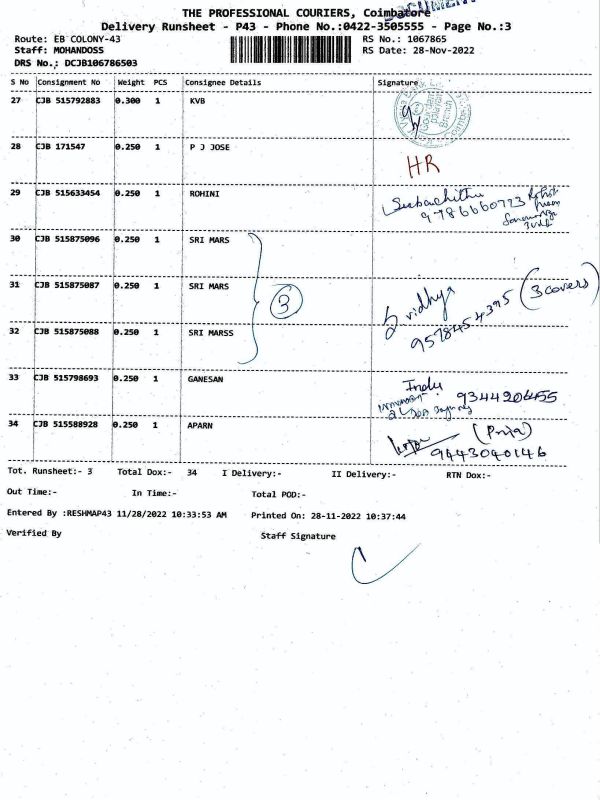 THE PROFESSIONAL COURIERS, Coimbatore
Delivery Runsheet - P43 - Phone No.:0422-3505555 - Page No.:3
Route: EB COLONY-43 RS No.: 1067865
Staff: MOHANDOSS RS Date: 28-Nov-2022
DRS No.: DCJB106786503
S No Consignment No Weight PCS Consignee Details Signature
27 CJB 515792883 0.300 1 KVB
28 CJB 171547 0.250 1 P J JOSE HR
29 CJB 515633454 0.250 1 ROHINI
9786660773
30 CJB 515875096 0.250 1 SRI MARS
31 CJB 515875087 0.250 1 SRI MARS 3 Vidhya (3 covers)
9578454395
32 CJB 515875088 0.250 1 SRI MARSS
33 CJB 515798693 0.250 1 GANESAN Indu
9344206455
34 CJB 515588928 0.250 1 APARN (Priya)
9443040146
Tot. Runsheet:- 3 Total Dox:- 34 I Delivery:- II Delivery:- RTN Dox:-
Out Time:- In Time:- Total POD:-
Entered By :RESHMAP43 11/28/2022 10:33:53 AM Printed On: 28-11-2022 10:37:44
Verified By Staff Signature